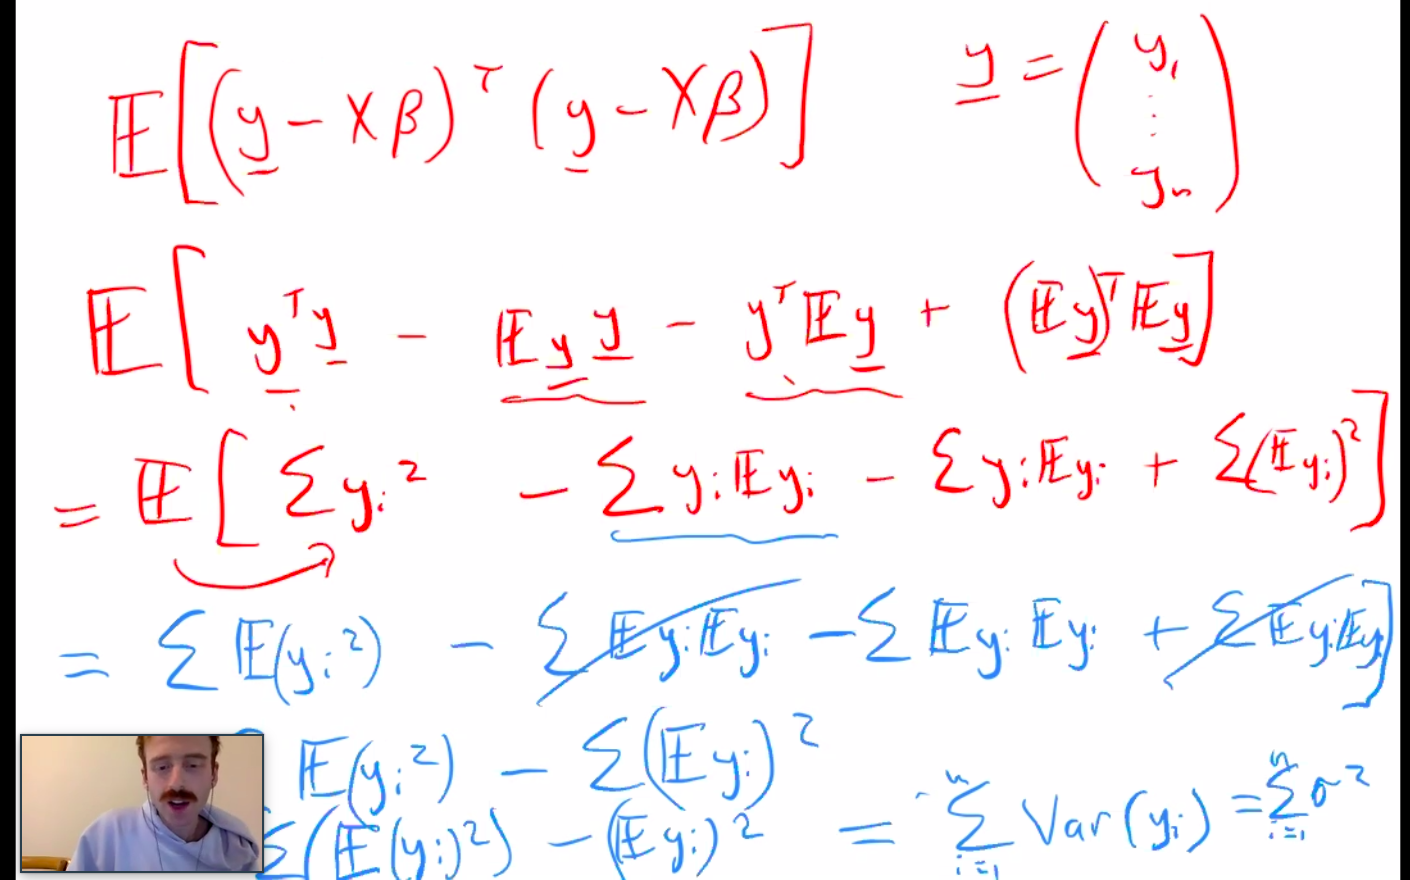 𝔼[(y - Xβ)ᵀ (y - Xβ)]   y = (y₁ ⋮ yₙ)
𝔼[ yᵀy - 𝔼y y - yᵀ𝔼y + (𝔼y)ᵀ𝔼y]
= 𝔼[ Σyᵢ² - Σyᵢ𝔼yᵢ - Σyᵢ𝔼yᵢ + Σ(𝔼yᵢ)²]
= Σ𝔼(yᵢ²) - Σ𝔼yᵢ𝔼yᵢ - Σ𝔼yᵢ𝔼yᵢ + Σ𝔼yᵢ𝔼yᵢ]
𝔼(yᵢ²) - Σ(𝔼yᵢ)²
Σ(𝔼(yᵢ)²) - (𝔼yᵢ)² = Σᵢ₌₁ⁿ Var(yᵢ) = Σᵢ₌₁ⁿ σ²